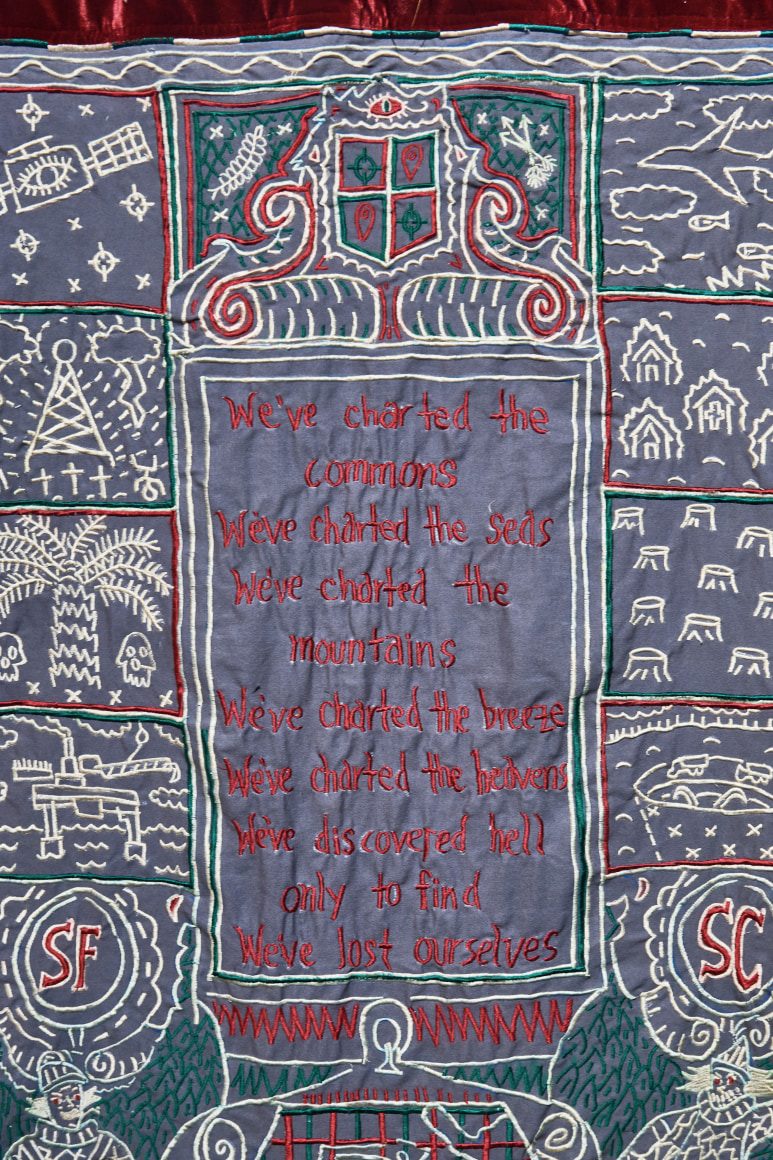 We've charted the
commons
We've charted the seas
We've charted the
mountains
We've charted the breeze
We've charted the heavens
We've discovered hell
only to find
We've lost ourselves
SF
SC